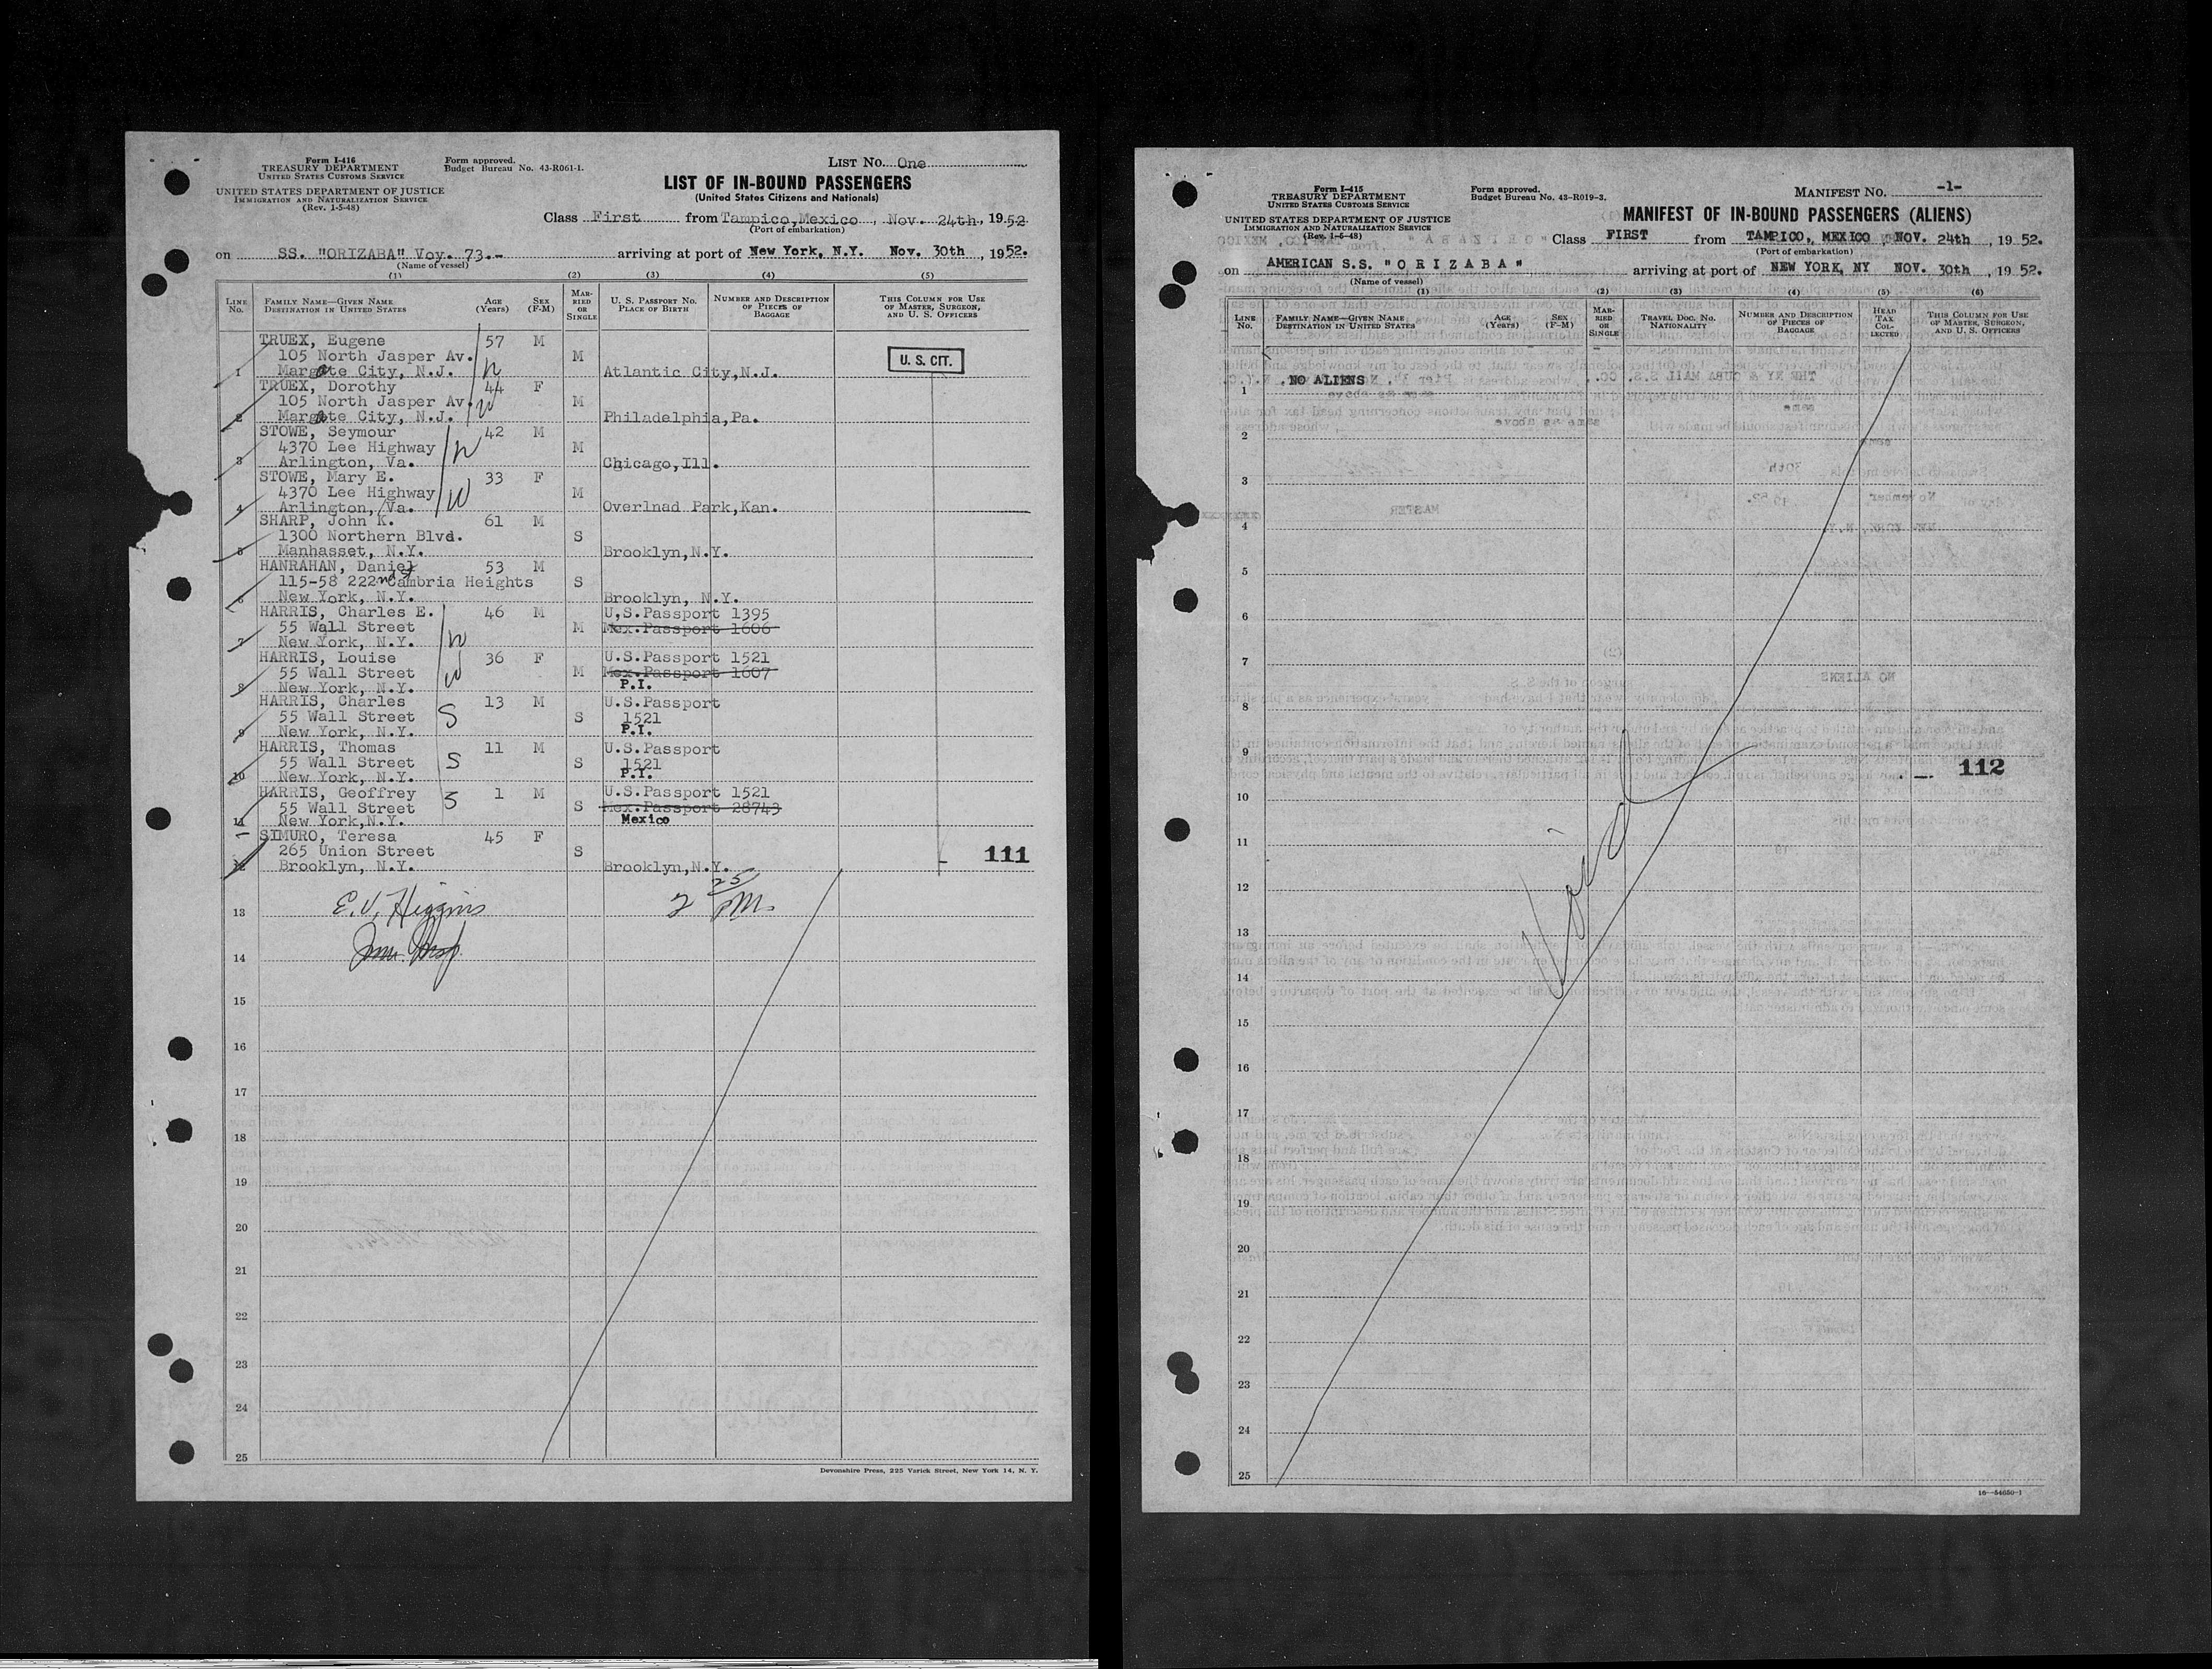 Form I-416
TREASURY DEPARTMENT
UNITED STATES CUSTOMS SERVICE
UNITED STATES DEPARTMENT OF JUSTICE
IMMIGRATION AND NATURALIZATION SERVICE
(Rev. 1-5-48)
Form approved.
Budget Bureau No. 43-R061-1.
LIST No. One
LIST OF IN-BOUND PASSENGERS
(United States Citizens and Nationals)
Class First from Tampico,Mexico , Nov. 24th, 1952.
(Port of embarkation)
on SS. "ORIZABA" Voy. 73.- arriving at port of New York, N.Y. Nov. 30th , 1952.
(Name of vessel)
(1) (2) (3) (4) (5)
LINE No. FAMILY NAME—GIVEN NAME DESTINATION IN UNITED STATES AGE (Years) SEX (F-M) MARRIED OR SINGLE U. S. PASSPORT NO. PLACE OF BIRTH NUMBER AND DESCRIPTION OF PIECES OF BAGGAGE THIS COLUMN FOR USE OF MASTER, SURGEON, AND U. S. OFFICERS
TRUEX, Eugene 57 M
105 North Jasper Av. M U. S. CIT.
1 Margate City, N.J. h Atlantic City,N.J.
TRUEX, Dorothy 44 F
105 North Jasper Av. W M
2 Margate City, N.J. Philadelphia,Pa.
STOWE, Seymour 42 M
4370 Lee Highway h M
3 Arlington, Va. Chicago,Ill.
STOWE, Mary E. 33 F
4370 Lee Highway W M
4 Arlington, Va. Overlnad Park,Kan.
SHARP, John K. 61 M
1300 Northern Blvd. S
5 Manhasset, N.Y. Brooklyn,N.Y.
HANRAHAN, Daniel 53 M
115-58 222nd St Cambria Heights S
6 New York, N.Y. Brooklyn, N.Y.
HARRIS, Charles E. 46 M U,S.Passport 1395
55 Wall Street M Mex.Passport 1606
7 New York, N.Y. h
HARRIS, Louise 36 F U.S.Passport 1521
55 Wall Street W M Mex.Passport 1607
8 New York, N.Y. P.I.
HARRIS, Charles 13 M U.S.Passport
55 Wall Street S S 1521
9 New York, N.Y. P.I.
HARRIS, Thomas 11 M U.S.Passport
55 Wall Street S S 1521
10 New York, N.Y. P.I.
HARRIS, Geoffrey 1 M U.S.Passport 1521
55 Wall Street S S Mex.Passport 28743
11 New York,N.Y. Mexico
SIMURO, Teresa 45 F
265 Union Street S 111
12 Brooklyn, N.Y. Brooklyn,N.Y.
13 E.V. Higgins 2 25 PM.
14 Imm. Insp.
15
16
17
18
19
20
21
22
23
24
25
Devonshire Press, 225 Varick Street, New York 14, N. Y.
Form I-415
TREASURY DEPARTMENT
UNITED STATES CUSTOMS SERVICE
UNITED STATES DEPARTMENT OF JUSTICE
IMMIGRATION AND NATURALIZATION SERVICE
(Rev. 1-6-48)
Form approved.
Budget Bureau No. 43-R019-3.
MANIFEST NO. -1-
MANIFEST OF IN-BOUND PASSENGERS (ALIENS)
Class FIRST from TAMPICO, MEXICO , NOV. 24th , 1952.
(Port of embarkation)
on AMERICAN S.S. "O R I Z A B A" arriving at port of NEW YORK, NY NOV. 30th , 1952.
(Name of vessel)
(1) (2) (3) (4) (5) (6)
LINE No. FAMILY NAME—GIVEN NAME DESTINATION IN UNITED STATES AGE (Years) SEX (F-M) MARRIED OR SINGLE TRAVEL DOC. NO. NATIONALITY NUMBER AND DESCRIPTION OF PIECES OF BAGGAGE HEAD TAX COLLECTED THIS COLUMN FOR USE OF MASTER, SURGEON, AND U. S. OFFICERS
1 NO ALIENS
2
3
4
5
6
7
8
9
112
10
11
12
Void
13
14
15
16
17
18
19
20
21
22
23
24
25
16—54650-1